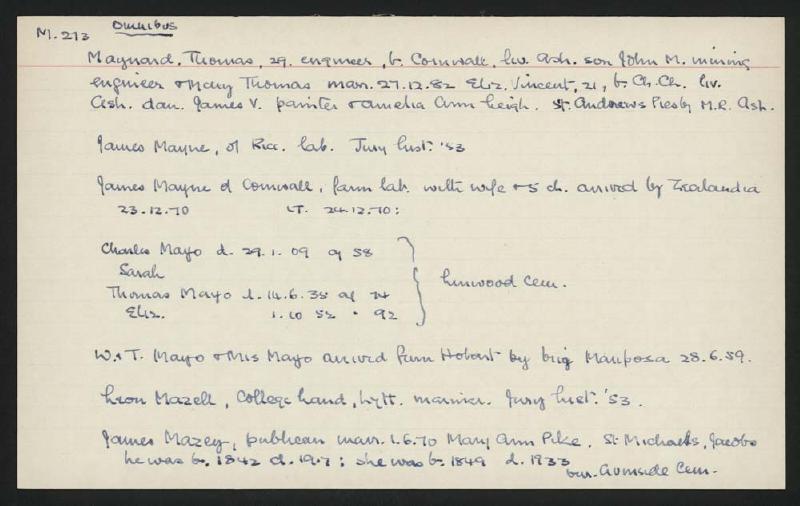 M.213 Omnibus
Maynard, Thomas, 29, engineer, b. Cornwall, liv. Ash. son John M. mining
engineer & Mary Thomas marr. 27.12.82 Eliz. Vincent, 21, b. Ch.Ch. liv.
Ash. dau. James V. painter & Amelia Ann Leigh. St. Andrews Presby M.R. Ash.
James Mayne, of Ricc. lab. Jury list: '53
James Mayne of Cornwall, farm lab. with wife & 5 ch. arrived by Zealandia
23.12.70 LT. 24.12.70:
Charles Mayo d. 29.1.09 ag 58
Sarah
Thomas Mayo d. 14.6.35 ag 74
Eliz. 1.10 52 " 92
Linwood Cem.
W. & T. Mayo & Mrs Mayo arrived from Hobart by brig Mariposa 28.6.59.
Leon Mazell, College land, Lytt. mariner. Jury list: '53.
James Mazey, publican marr. 1.6.70 Mary Ann Pike, St Michaels, Jacobs
he was b. 1842 d. 1917: she was b. 1849 d. 1933
bur. Avonside Cem.